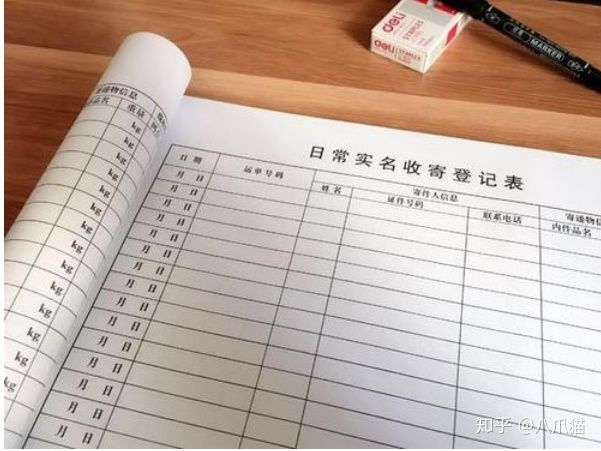 deli
deli
STAPLES
MARKER
寄递物信息
品名 重量
kg
kg
kg
kg
kg
kg
kg
kg
kg
kg
kg
日常实名收寄登记表
日 期 运单号码 寄件人信息 寄递物信
姓 名 证件号码 联系电话 内件品名
月 日
月 日
月 日
月 日
月 日
月 日
月 日
月 日
月 日
月 日
月 日
月 日
月 日
知乎 @八爪猫